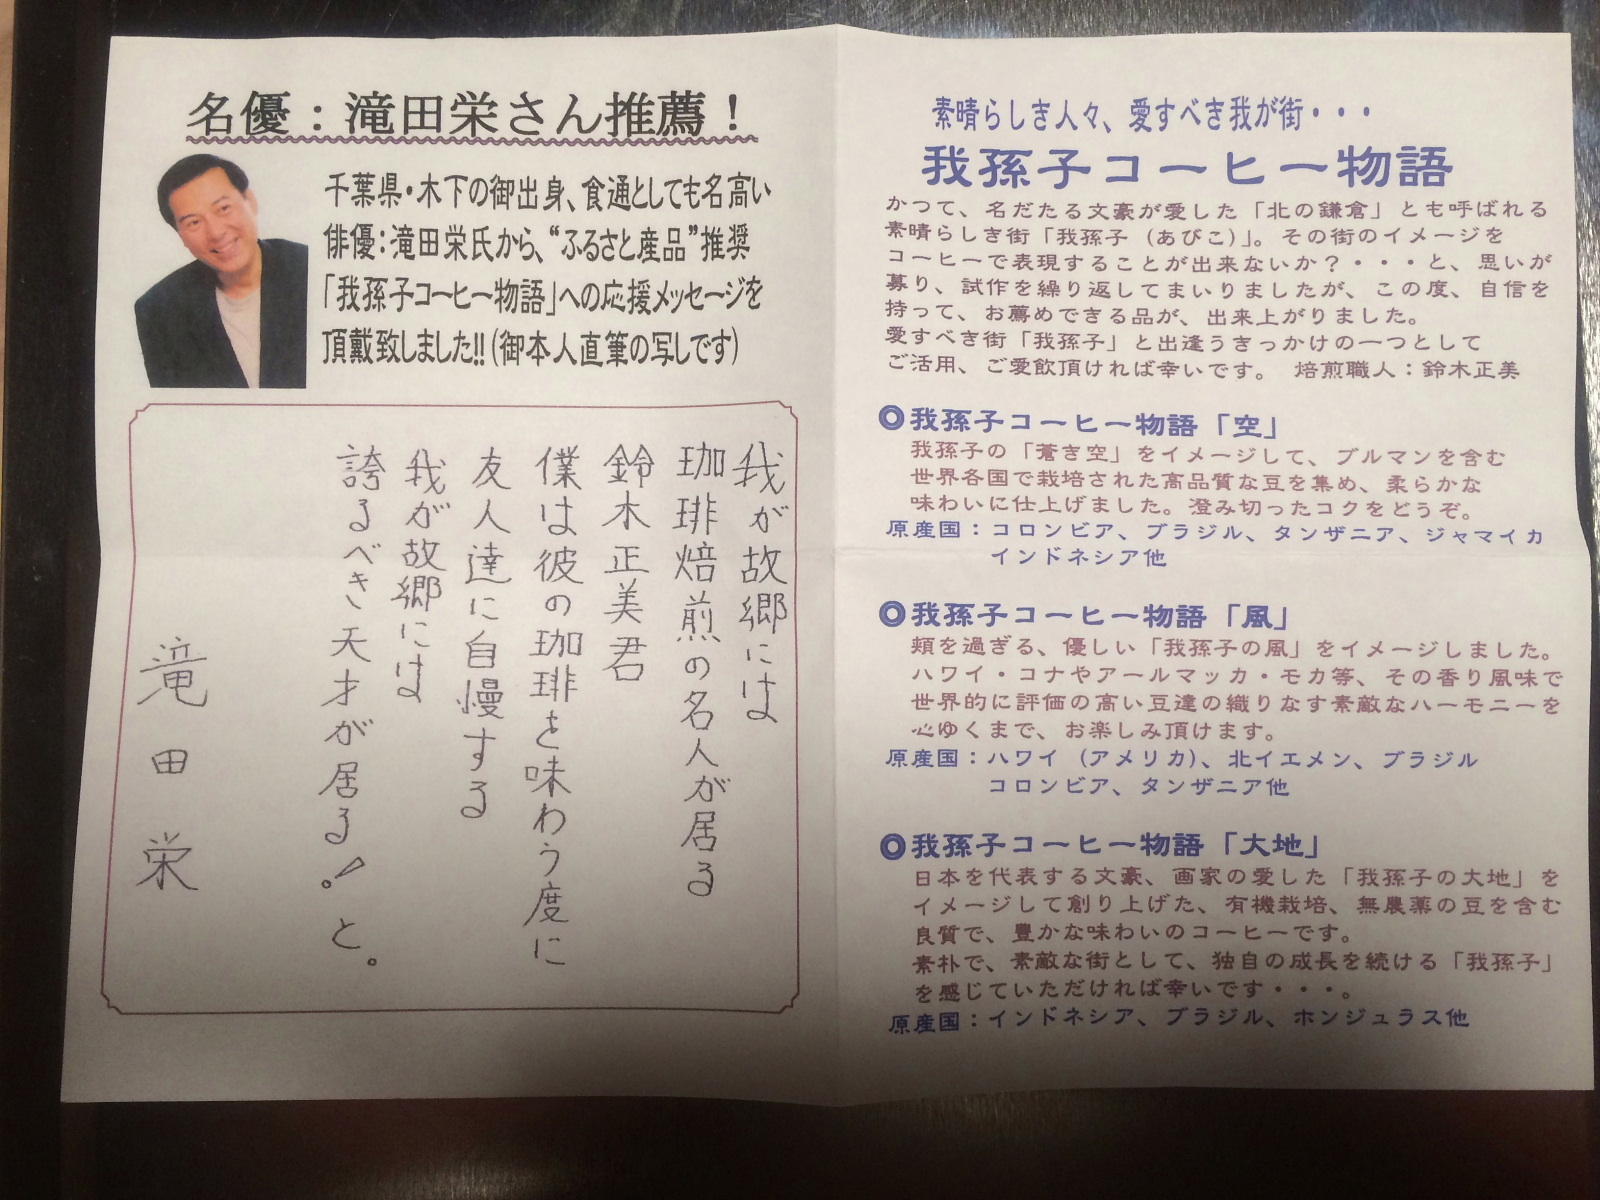 名優：滝田栄さん推薦！
千葉県・木下の御出身、食通としても名高い
俳優：滝田栄氏から、“ふるさと産品”推奨
「我孫子コーヒー物語」への応援メッセージを
頂戴致しました!!（御本人直筆の写しです）
我が故郷には
珈琲焙煎の名人が居る
鈴木正美君
僕は彼の珈琲を味わう度に
友人達に自慢する
我が故郷には
誇るべき天才が居る！と。
滝田栄
素晴らしき人々、愛すべき我が街・・・
我孫子コーヒー物語
かつて、名だたる文豪が愛した「北の鎌倉」とも呼ばれる
素晴らしき街「我孫子（あびこ）」。その街のイメージを
コーヒーで表現することが出来ないか？・・・と、思いが
募り、試作を繰り返してまいりましたが、この度、自信を
持って、お薦めできる品が、出来上がりました。
愛すべき街「我孫子」と出逢うきっかけの一つとして
ご活用、ご愛飲頂ければ幸いです。　焙煎職人：鈴木正美
◎我孫子コーヒー物語「空」
我孫子の「蒼き空」をイメージして、ブルマンを含む
世界各国で栽培された高品質な豆を集め、柔らかな
味わいに仕上げました。澄み切ったコクをどうぞ。
原産国：コロンビア、ブラジル、タンザニア、ジャマイカ
インドネシア他
◎我孫子コーヒー物語「風」
頬を過ぎる、優しい「我孫子の風」をイメージしました。
ハワイ・コナやアールマッカ・モカ等、その香り風味で
世界的に評価の高い豆達の織りなす素敵なハーモニーを
心ゆくまで、お楽しみ頂けます。
原産国：ハワイ（アメリカ）、北イエメン、ブラジル
コロンビア、タンザニア他
◎我孫子コーヒー物語「大地」
日本を代表する文豪、画家の愛した「我孫子の大地」を
イメージして創り上げた、有機栽培、無農薬の豆を含む
良質で、豊かな味わいのコーヒーです。
素朴で、素敵な街として、独自の成長を続ける「我孫子」
を感じていただければ幸いです・・・。
原産国：インドネシア、ブラジル、ホンジュラス他